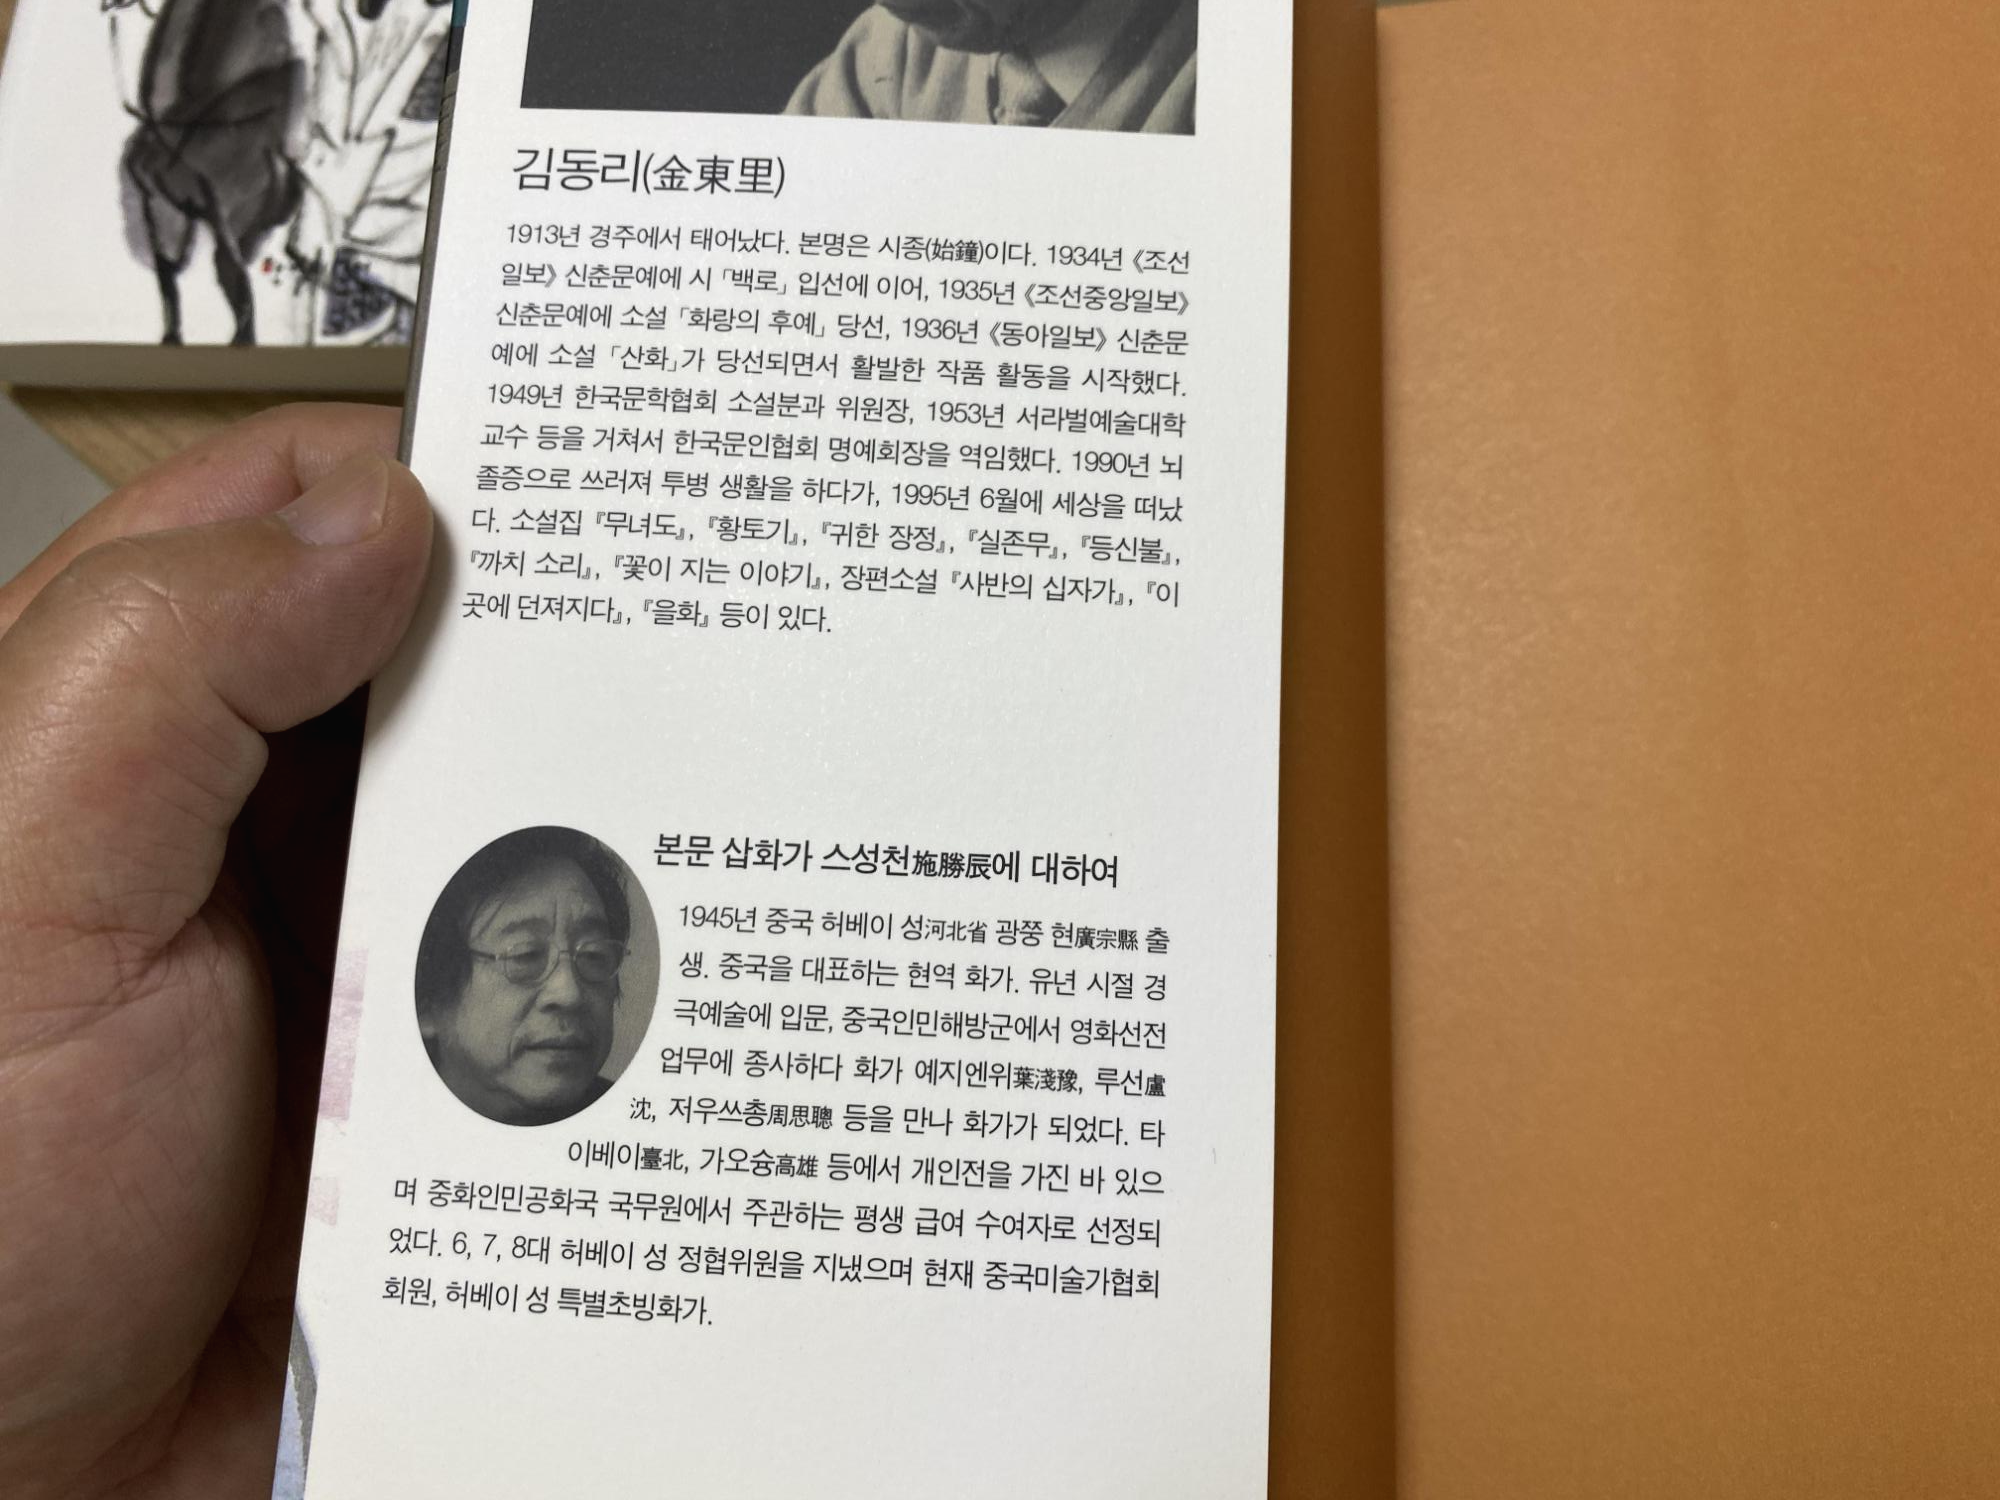 김동리(金東里)
1913년 경주에서 태어났다. 본명은 시종(始鐘)이다. 1934년 《조선
일보》 신춘문예에 시 「백로」 입선에 이어, 1935년 《조선중앙일보》
신춘문예에 소설 「화랑의 후예」 당선, 1936년 《동아일보》 신춘문
예에 소설 「산화」가 당선되면서 활발한 작품 활동을 시작했다.
1949년 한국문학협회 소설분과 위원장, 1953년 서라벌예술대학
교수 등을 거쳐서 한국문인협회 명예회장을 역임했다. 1990년 뇌
졸증으로 쓰러져 투병 생활을 하다가, 1995년 6월에 세상을 떠났
다. 소설집 『무녀도』, 『황토기』, 『귀한 장정』, 『실존무』, 『등신불』,
『까치 소리』, 『꽃이 지는 이야기』, 장편소설 『사반의 십자가』, 『이
곳에 던져지다』, 『을화』 등이 있다.
본문 삽화가 스성천施勝辰에 대하여
1945년 중국 허베이 성河北省 광쭝 현廣宗縣 출
생. 중국을 대표하는 현역 화가. 유년 시절 경
극예술에 입문, 중국인민해방군에서 영화선전
업무에 종사하다 화가 예지엔위葉淺豫, 루선盧
沈, 저우쓰총周思聰 등을 만나 화가가 되었다. 타
이베이臺北, 가오슝高雄 등에서 개인전을 가진 바 있으
며 중화인민공화국 국무원에서 주관하는 평생 급여 수여자로 선정되
었다. 6, 7, 8대 허베이 성 정협위원을 지냈으며 현재 중국미술가협회
회원, 허베이 성 특별초빙화가.